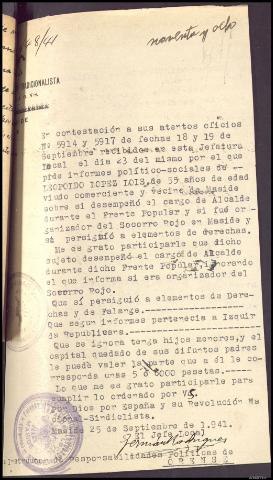 48/41
noventa y ocho
TRADICIONALISTA
En contestación a sus atentos oficios
Nº 5914 y 5917 de fechas 18 y 19 de
Septiembre recibidos en esta Jefatura
local el dia 23 del mismo por el que
pide informes político-sociales de
LEOPOLDO LOPEZ LOIS, de 55 años de edad
viudo comerciante y vecino de Maside
sobre si desempeñó el cargo de Alcalde
durante el Frente Popular y si fué or-
ganizador del Socorro Rojo en Maside y
si persiguió a elementos de derechas.
Me es grato participarle que dicho
sujeto desempeñó el cargo de Alcalde
durante dicho Frente Popular, ignorando
el que informa si era organizador del
Socorro Rojo.
Que sí persiguió a elementos de Dere-
chas y de Falange.
Que segun informes pertenecia a Izquir
da Republicana.
Que se ignora tenga hijos menores, y el
capital quedado de sus difuntos padres
le puede valer la parte que a él le co-
rresponda unas 5 o 6000 pesetas.
Lo que me es grato participarle para
cumplir lo ordenado por VS.
Por Dios por España y su Revolución Na
cional-Sindicalista.
Maside 25 de Septiembre de 1.941.
El Jefe Local
Responsabilidades Políticas de
ORENSE